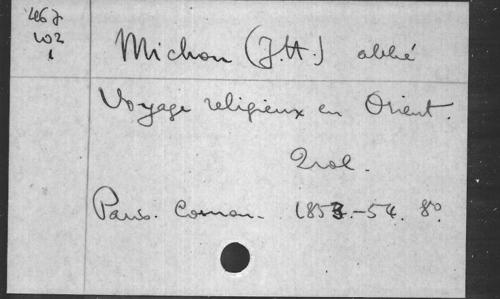 467
102
1
Michon (J.H.) abbé
Voyage religieux en Orient.
2 vol.
Paris. Comon. 1853.-54. 8º.